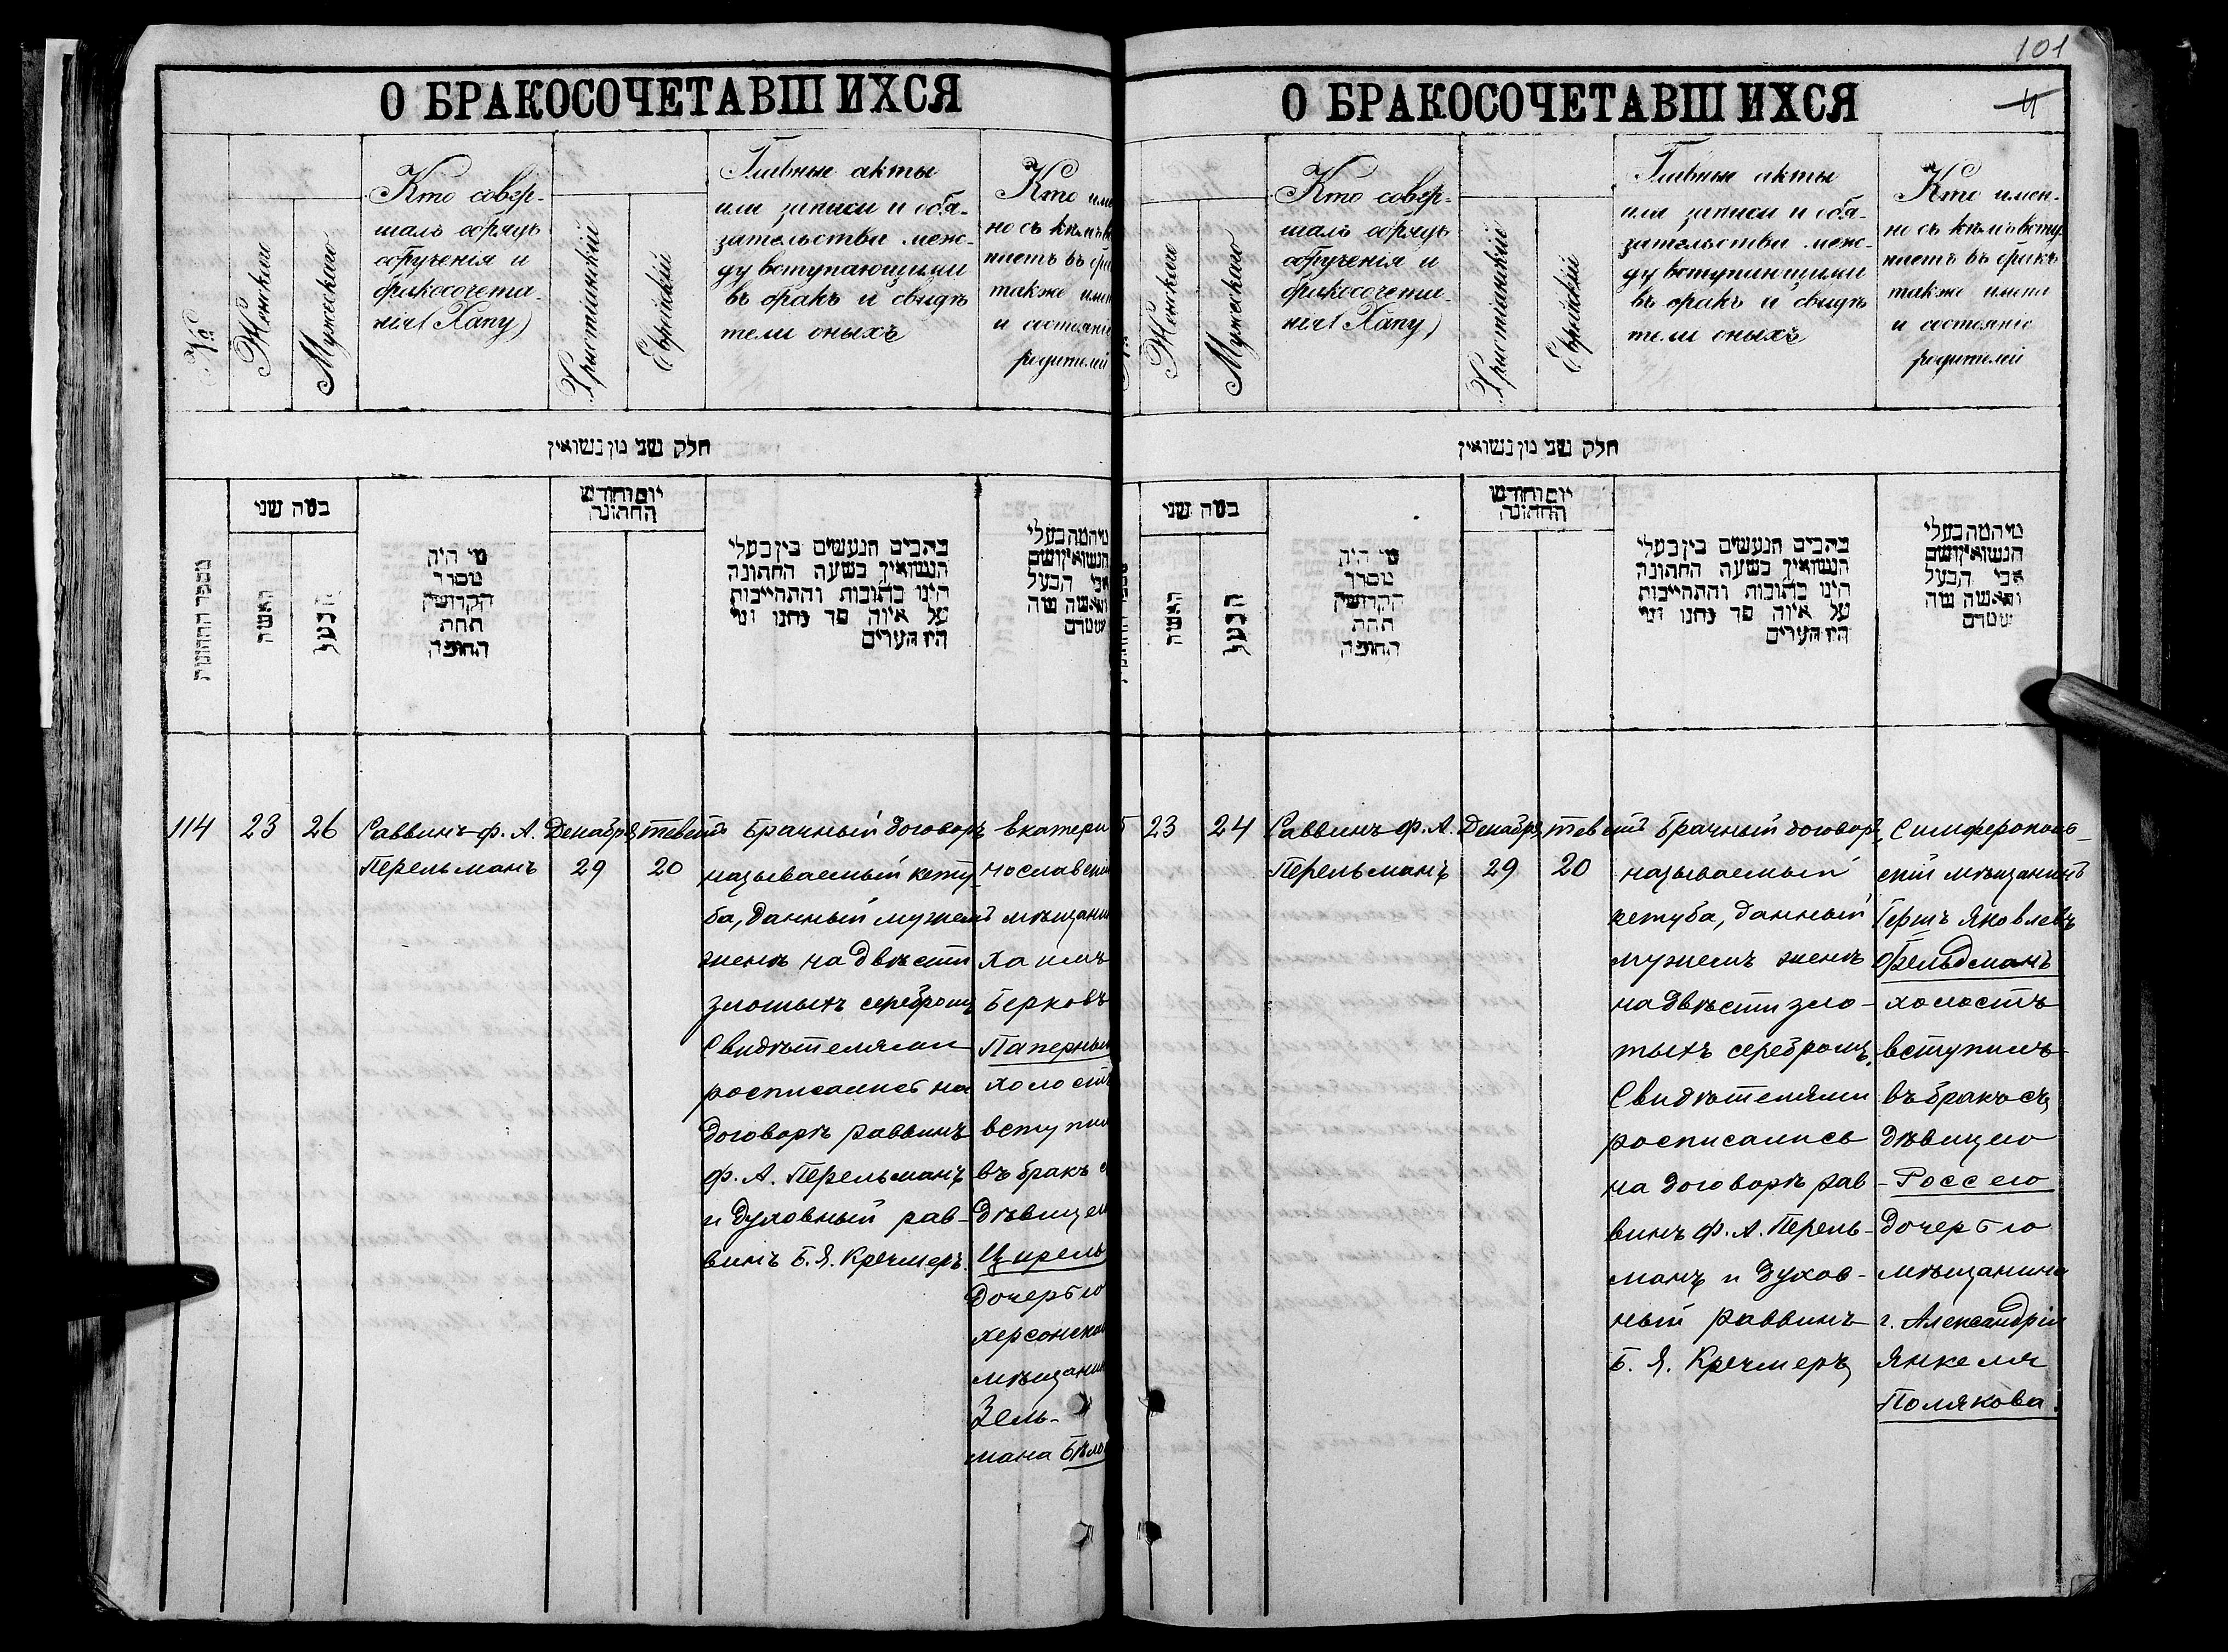 О БРАКОСОЧЕТАВШИХСЯ
№
Женскаго
Мужескаго
Кто совер-
шалъ обрядъ
обрученія и
бракосочета-
нія (Хапу)
Христіанскій
Еврейскій
Главные акты
или записи и обя-
зательства меж-
ду вступающими
въ бракъ и свидѣ
тели оныхъ
Кто имен
но съ кѣмъ в
паетъ въ бра
также имен
и состояніе
родителей
חלק שני מן נשואין
מספר החתונות
כמה שני
האשה
הבעל
מי היה
מסדר
הקדושין
תחת
החופה
יום וחודש
החתונה
כתבים הנעשים בין בעלי
הנשואין בשעה החתונה
היינו כתובות והתחייבות
על איזה סך נתנו ומי
היו העדים
אבי הבעל
114
23
26
Раввинъ Ф. А.
Перельманъ
Декабря
29
Теветъ
20
Брачный договоръ
называемый кету-
ба, данный мужемъ
женѣ на двѣсти
злотыхъ серебромъ
Свидѣтелями
росписались на
договорѣ раввинъ
Ф. А. Перельманъ
и духовный рав-
винъ Б. Я. Кречмеръ.
Екатери
нославскій
мѣщанин
Хаимъ
Берковъ
Паперный
холостъ
вступил
въ бракъ с
дѣвицею
Цирель
дочерью
херсонска
мѣщанин
Зель-
мана Бѣло
101
4
О БРАКОСОЧЕТАВШИХСЯ
Женскаго
Мужескаго
Кто совер-
шалъ обрядъ
обрученія и
бракосочета-
нія (Хапу)
Христіанскій
Еврейскій
Главные акты
или записи и обя-
зательства меж-
ду вступающими
въ бракъ и свидѣ
тели оныхъ
Кто имен-
но съ кѣмъ всту-
паетъ въ бракъ
также имена
и состояніе
родителей
חלק שני מן נשואין
כמה שני
האשה
הבעל
מי היה
מסדר
הקדושין
תחת
החופה
יום וחודש
החתונה
כתבים הנעשים בין בעלי
הנשואין בשעה החתונה
היינו כתובות והתחייבות
על איזה סך נתנו ומי
היו העדים
אבי הבעל
23
24
Раввинъ Ф. А.
Перельманъ
Декабря
29
Теветъ
20
Брачный договоръ,
называемый
кетуба, данный
мужемъ женѣ
на двѣсти зло-
тыхъ серебромъ.
Свидѣтелями
росписались
на договорѣ рав
винъ Ф. А. Перель-
манъ и духов-
ный раввинъ
Б. Я. Кречмеръ
Симферополь-
скій мѣщанинъ
Гершъ Яковлевъ
Фельдманъ
холостъ
вступилъ
въ бракъ съ
дѣвицею
Россею
дочерью
мѣщанина
г. Александріи
Янкеля
Полякова.